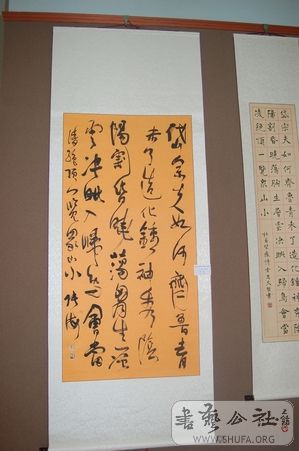 岱宗夫如何齊魯青
未了造化鍾神秀陰
陽割昏曉蕩胸生層
雲決眥入歸鳥會當
凌絕頂一覽眾山小
岱宗夫如何齊魯青未了造化鍾神秀陰
陽割昏曉蕩胸生層雲決眥入歸鳥會當
凌絕頂一覽眾山小
書藝公社
WWW.SHUFA.ORG